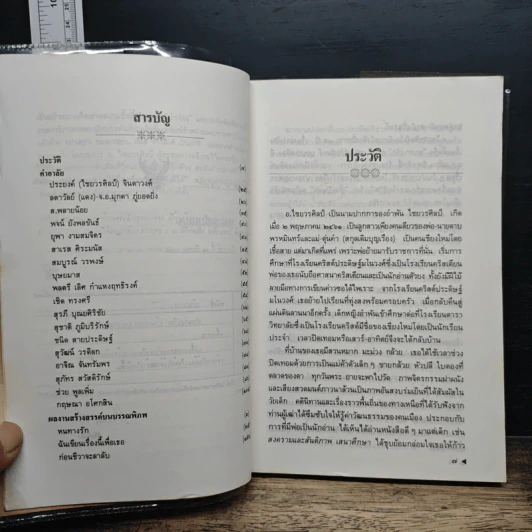 สารบัญ
ประวัติ
คำอาลัย
ประยงค์ (ไชยวรศิลป์) จินดาวงศ์
ลดาวัลย์ (แดง)-จ.อ.มุกดา ภู่ยอดยิ่ง
ส.พลายน้อย
พจน์ มังพลขันธ์
ยุพา งามสมจิตร
สาเรส ศิระมนัส
สมบูรณ์ วรพงษ์
บุษยมาส
พลตรี เลิศ กำแหงฤทธิรงค์
เชิด ทรงศรี
สุรภี บุณยศิริชัย
สุชาติ ภูมิบริรักษ์
ชนิด สายประดิษฐ์
สุวัฒน์ วรดิลก
อาจิณ จันทรัมพร
สุภัทร สวัสดิรักษ์
ช่วย พูลเพิ่ม
กฤษณา อโศกสิน
ผลงานสร้างสรรค์บนบรรณพิภพ
หนทางรัก
ฉันเขียนเรื่องนี้เพื่อเธอ
ก่อนชีวาจะลาลับ
ประวัติ
อ.ไชยวรศิลป์ เป็นนามปากกาของอำพัน ไชยวรศิลป์ เกิด
เมื่อ ๒ พฤษภาคม ๒๔๖๑ เป็นลูกสาวเพียงคนเดียวของพ่อ-นายดาบ
พรหมมินทร์และแม่-ตุ่นคำ (สกุลเดิมบุญเรือง) เป็นคนเชียงใหม่โดย
เชื้อสาย แต่มาเกิดที่แพร่ เพราะพ่อย้ายมารับราชการที่นั่น เริ่มการ
ศึกษาที่โรงเรียนคริสต์ประดิษฐ์มโนวงค์ซึ่งเป็นโรงเรียนคริสเตียน
พ่อของเธอนับถือศาสนาคริสเตียนและเป็นนักอ่านตัวยง ทั้งยังมีฝีไม้
ลายมือทางการแต่งค่าวซอได้ไพเราะ จากโรงเรียนคริสต์ประดิษฐ์
มโนวงค์ เธอย้ายไปเรียนที่ทุ่งสงพร้อมครอบครัว เมื่อกลับคืนสู่
แผ่นดินลานนาอีกครั้ง เด็กหญิงอำพันเข้าศึกษาต่อที่โรงเรียนดารา
วิทยาลัยซึ่งเป็นโรงเรียนคริสเตียนมีชื่อของเชียงใหม่โดยเป็นนักเรียน
ประจำ เวลาปิดเทอมหรือเสาร์-อาทิตย์จึงจะได้กลับบ้าน
ที่บ้านของเธอมีสวนหมาก มะม่วง กล้วย เธอได้ใช้เวลาช่วง
ปิดเทอมด้วยการเป็นแม่ค้าตัวเล็ก ๆ ขายกล้วย หัวปลี ใบตองที่
ตลาดของตา ทุกวันพระ ยายจะพาไปวัด ภาพจิตรกรรมฝาผนัง
และเสียงสวดมนต์ภาวนาล้วนเป็นภาพอันสงบร่มเย็นที่ได้สัมผัสใน
วัยเด็ก คตินิทานและเรื่องราวพื้นถิ่นของทางเหนือที่ได้รับฟังจาก
ท่านผู้เฒ่าได้ซึมซับใจให้รู้ค่าวัฒนธรรมของคนเมือง ประกอบกับ
การที่มีพ่อเป็นนักอ่าน ได้เห็นได้อ่านหนังสือดี ๆ มาแต่เด็ก เช่น
สงครามและสันติภาพ เสนาศึกษา ได้ชุบย้อมกล่อมใจเธอให้ก้าว
๗